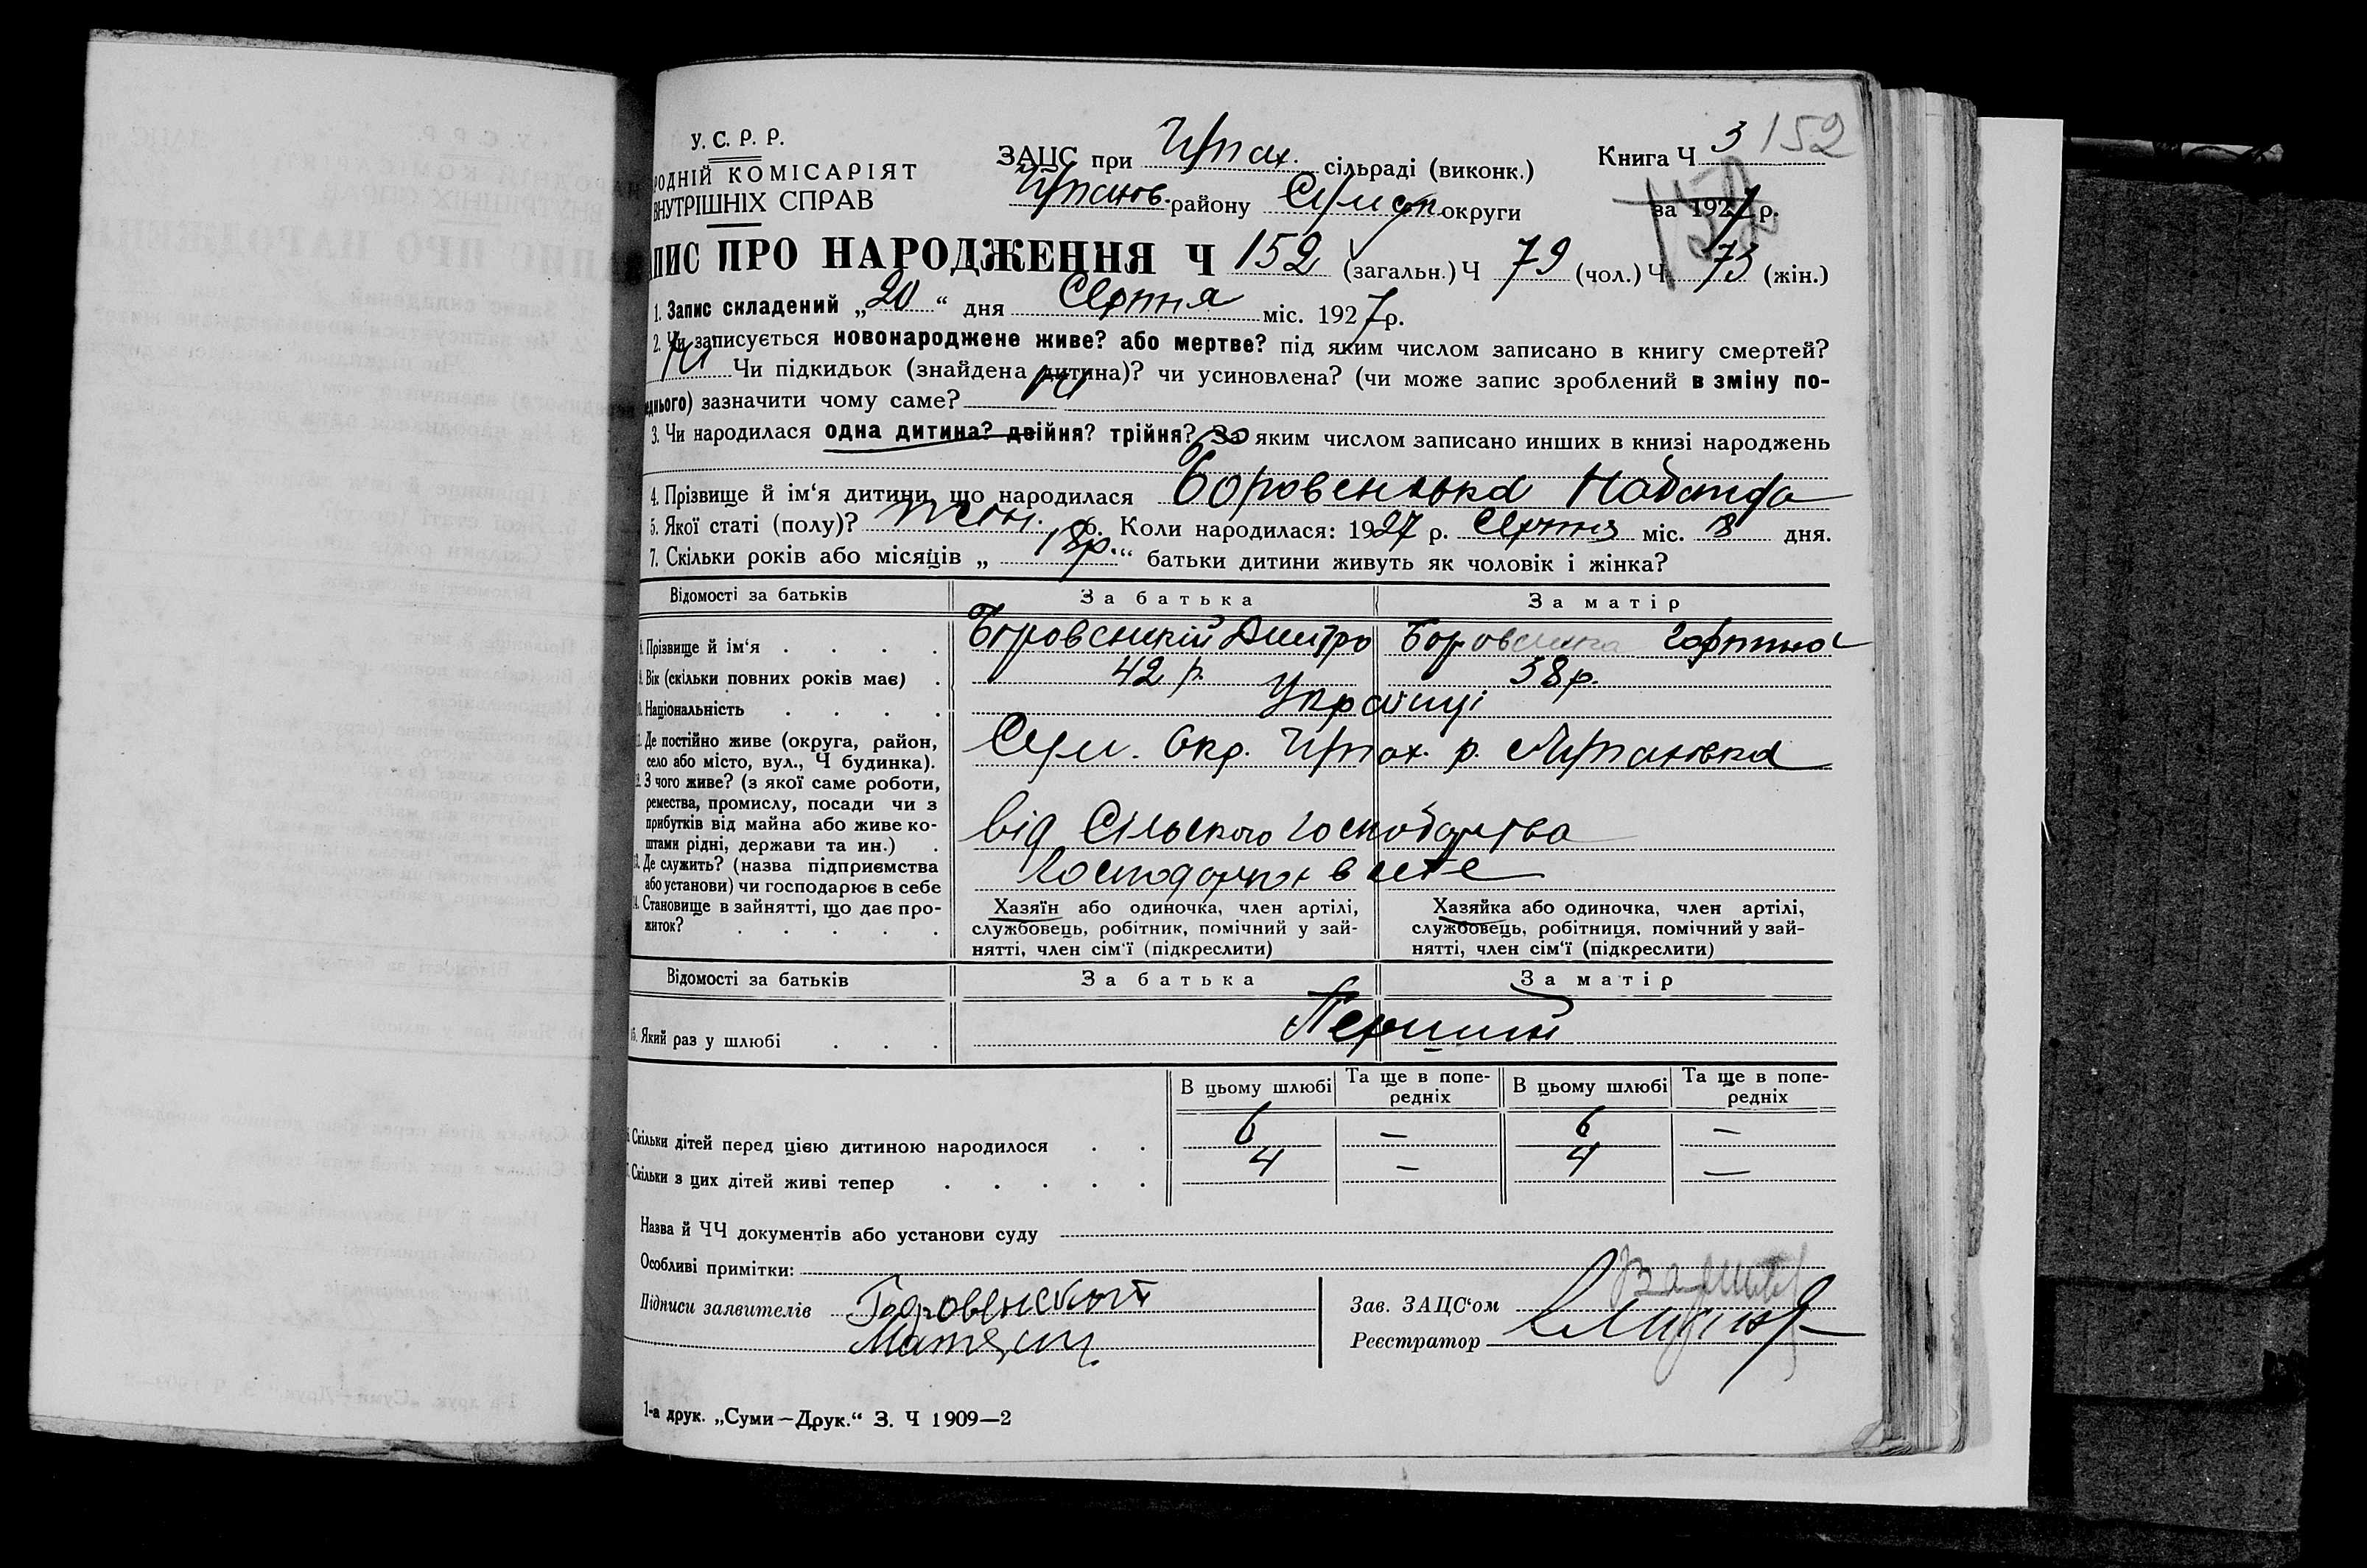 У. С. Р. Р.
РОДНІЙ КОМІСАРІЯТ
ВНУТРІШНІХ СПРАВ
ЗАЦС при сільраді (виконк.)
району округи
Книга Ч 3 152
за 1927 р.
ПИС ПРО НАРОДЖЕННЯ Ч 152 (загальн.) Ч 79 (чол.) Ч 73 (жін.)
1. Запис складений „20“ дня Серпня міс. 1927 р.
2. Чи записується новонароджене живе? або мертве? під яким числом записано в книгу смертей?
ні Чи підкидьок (знайдена дитина)? чи усиновлена? (чи може запис зроблений в зміну по-
еднього) зазначити чому саме? ні
3. Чи народилася одна дитина? двійня? трійня? За яким числом записано инших в книзі народжень
4. Прізвище й ім‘я дитини, що народилася Боровенська
5. Якої статі (полу)? жін. 6. Коли народилася: 1927 р. Серпня міс. 18 дня.
7. Скільки років або місяців „18р.“ батьки дитини живуть як чоловік і жінка?
Відомості за батьків За батька За матір
Прізвище й ім‘я Боровенський Дмитро Боровенська Гафтина
9. Вік (скільки повних років має) 42 р. 38 р.
10. Національність Українці
11. Де постійно живе (округа, район,
село або місто, вул., Ч будинка). Сум. Окр. р.
12. З чого живе? (з якої саме роботи,
ремества, промислу, посади чи з
прибутків від майна або живе ко-
штами рідні, держави та ин.) Від Сільского господарства
13. Де служить? (назва підприємства
або установи) чи господарює в себе в себе
14. Становище в зайнятті, що дає про-
житок?
Хазяїн або одиночка, член артілі,
службовець, робітник, помічний у зай-
нятті, член сім‘ї (підкреслити)
Хазяйка або одиночка, член артілі,
службовець, робітниця, помічний у зай-
нятті, член сім‘ї (підкреслити)
Відомості за батьків За батька За матір
15. Який раз у шлюбі Перший
В цьому шлюбі Та ще в попе-
редніх В цьому шлюбі Та ще в попе-
редніх
Скільки дітей перед цією дитиною народилося 6 — 6 —
Скільки з цих дітей живі тепер 4 — 4 —
Назва й ЧЧ документів або установи суду
Особливі примітки:
Підписи заявителів
Зав. ЗАЦС‘ом
Реєстратор
1-а друк. „Суми—Друк.“ З. Ч 1909—2